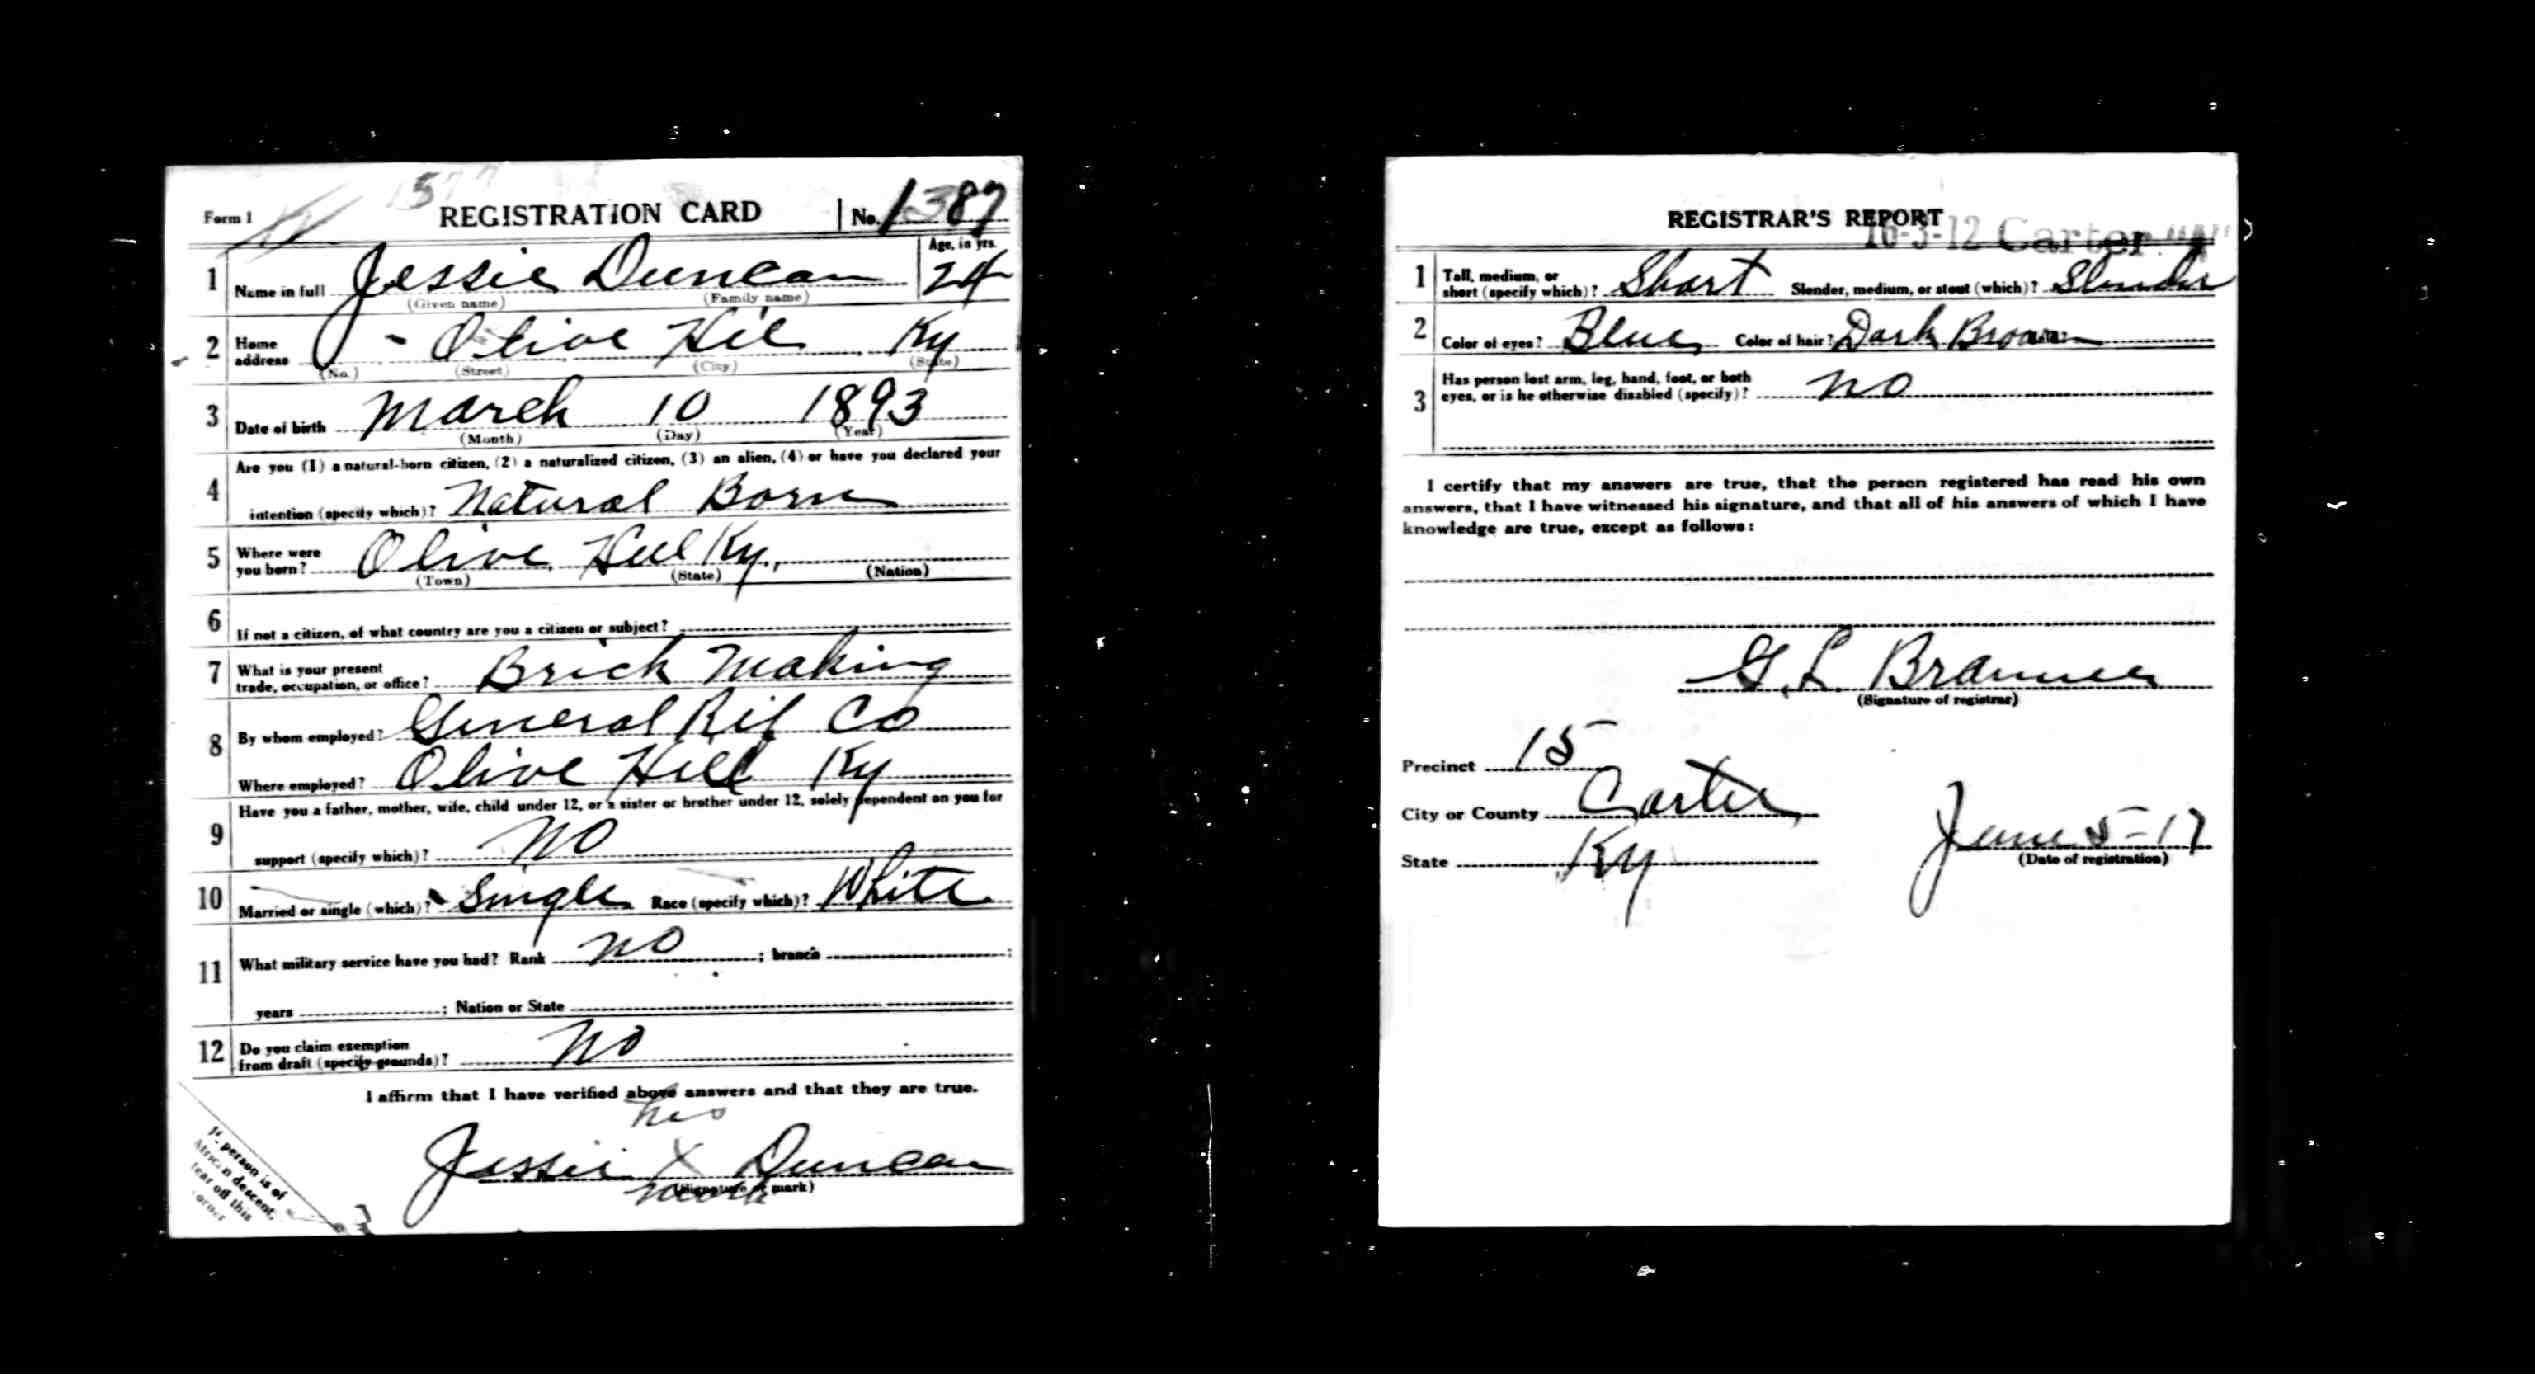 Form 1 REGISTRATION CARD No. 1387
1 Name in full Jessie Duncan Age, in yrs. 24
(Given name) (Family name)
2 Home address - Olive Hill Ky
(No.) (Street) (City) (State)
3 Date of birth March 10 1893
(Month) (Day) (Year)
4 Are you (1) a natural-born citizen, (2) a naturalized citizen, (3) an alien, (4) or have you declared your
intention (specify which)? Natural Born
5 Where were you born? Olive Hill Ky.
(Town) (State) (Nation)
6 If not a citizen, of what country are you a citizen or subject?
7 What is your present trade, occupation, or office? Brick Making
8 By whom employed? General Rif Co
Where employed? Olive Hill Ky
9 Have you a father, mother, wife, child under 12, or a sister or brother under 12, solely dependent on you for
support (specify which)? No
10 Married or single (which)? Single Race (specify which)? White
11 What military service have you had? Rank no ; branch ;
years ; Nation or State
12 Do you claim exemption from draft (specify grounds)? No
I affirm that I have verified above answers and that they are true.
his
Jessie X Duncan
mark
(Signature or mark)
If person is of
African descent,
tear off this
corner
REGISTRAR'S REPORT
16-3-12 Carter
1 Tall, medium, or short (specify which)? Short Slender, medium, or stout (which)? Slender
2 Color of eyes? Blue Color of hair? Dark Brown
3 Has person lost arm, leg, hand, foot, or both
eyes, or is he otherwise disabled (specify)? no
I certify that my answers are true, that the person registered has read his own
answers, that I have witnessed his signature, and that all of his answers of which I have
knowledge are true, except as follows:
G. L. Brammer
(Signature of registrar)
Precinct 15
City or County Carter
State Ky
June 5-17
(Date of registration)